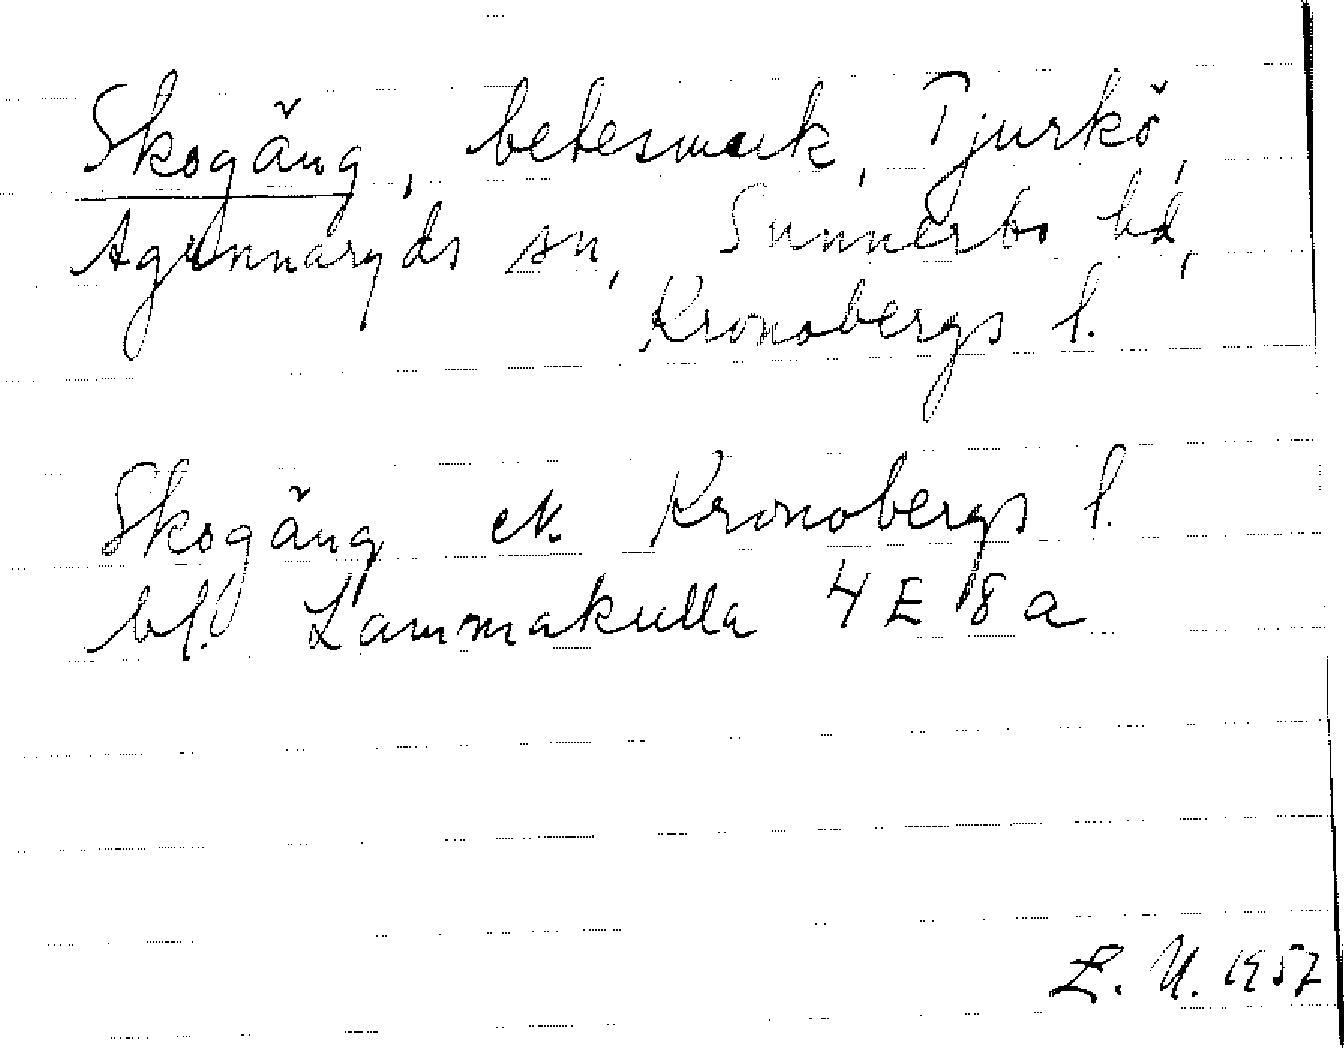 Skogäng, betesmark, Tjurkö,
Agunnaryds sn, Sunnerbo hd,
Kronobergs l.
Skogäng ek. Kronobergs l.
bl. Lammakulla 4 E 8 a
E. U. 1957